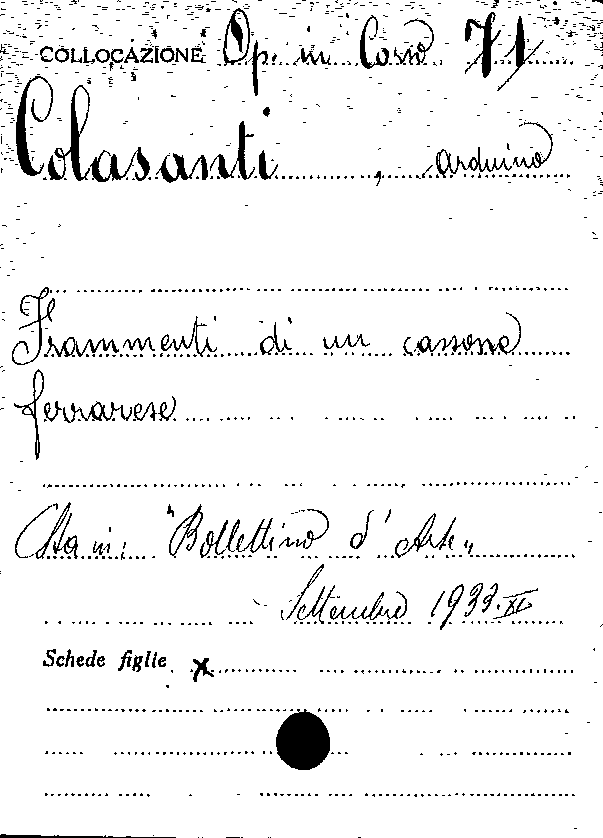 COLLOCAZIONE Op. in Corso 71
Colasanti, Arduino
Frammenti di un cassone
ferrarese
Sta in: "Bollettino d'Arte"
Settembre 1933.XI
Schede figlie x